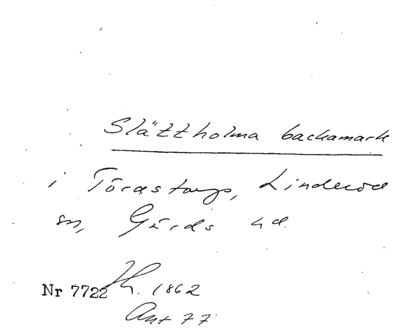 Slättholma backamark
i Törastorps, Linderöd
sn, Gärds hd.
Nr 7722 Kr. 1862
Ant 77